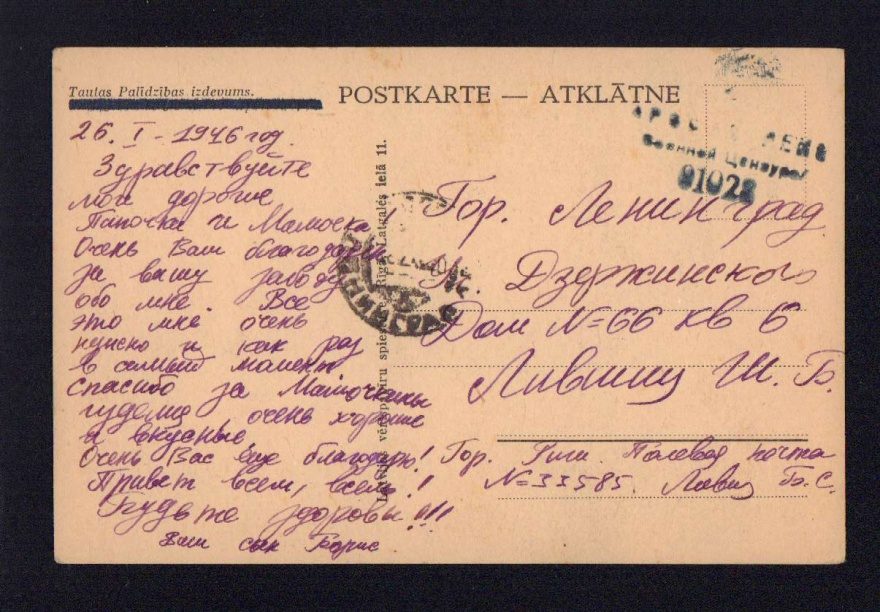 Tautas Palīdzības izdevums.
POSTKARTE — ATKLĀTNE
26. I - 1946 год.
Здравствуйте
мои дорогие
Папочка и Мамочка!
Очень Вам благодарен
за вашу заботу
обо мне. Все
это мне очень
нужно и как раз
в самый момент
спасибо за Мамочкины
изделия, очень хорошие
и вкусные.
Очень Вас еще благодарю!
Привет всем, всем!!
Будьте здоровы!!!
Ваш сын Борис
Rīgā, Latgales ielā 11.
Военной Цензурой
01028
Гор. Ленинград
Дзержинского
Дом №66 кв 6
Лившиц Ш. Б.
Гор. Рига. Полевая почта
№33585. Лившиц Б. С.